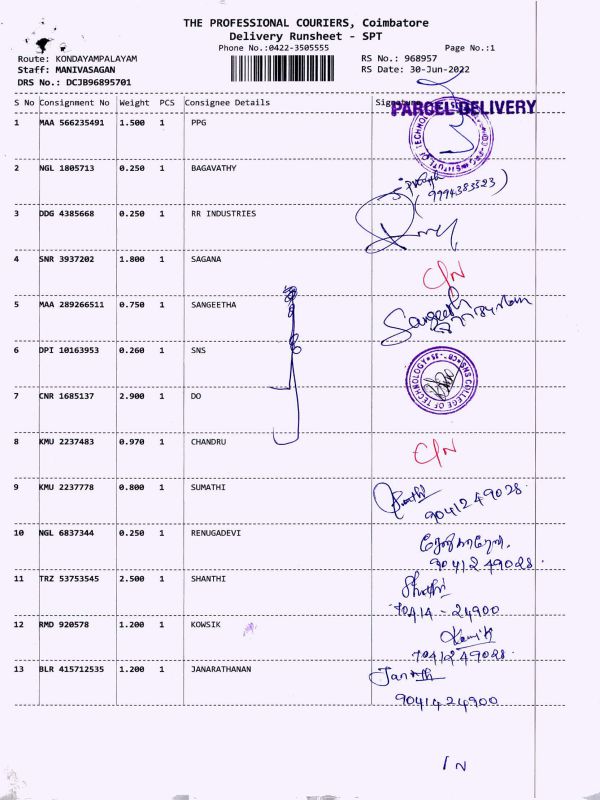 THE PROFESSIONAL COURIERS, Coimbatore
Delivery Runsheet - SPT
Phone No.:0422-3505555
Page No.:1
Route: KONDAYAMPALAYAM
RS No.: 968957
Staff: MANIVASAGAN
RS Date: 30-Jun-2022
DRS No.: DCJB96895701
S No Consignment No Weight PCS Consignee Details Signature
PARCEL DELIVERY
1 MAA 566235491 1.500 1 PPG
2 NGL 1805713 0.250 1 BAGAVATHY
(9994383323)
3 DDG 4385668 0.250 1 RR INDUSTRIES
4 SNR 3937202 1.800 1 SAGANA C/N
5 MAA 289266511 0.750 1 SANGEETHA Sangeeth
6 DPI 10163953 0.260 1 SNS
SNS COLLEGE OF TECHNOLOGY
7 CNR 1685137 2.900 1 DO
8 KMU 2237483 0.970 1 CHANDRU C/N
9 KMU 2237778 0.800 1 SUMATHI
9041249028.
10 NGL 6837344 0.250 1 RENUGADEVI
9041249028.
11 TRZ 53753545 2.500 1 SHANTHI
70414-24900
12 RMD 920578 1.200 1 KOWSIK
7041249028.
13 BLR 415712535 1.200 1 JANARATHANAN
9041424900